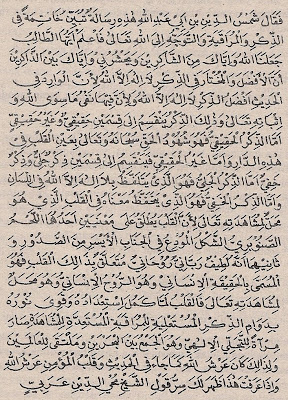 فقال شمس الدين بن ابي عبد الله هذه رسالة تبين عاتمة في
الذكر والمراقبة والتوجه الى الله تعالى فاعلم ايها الطالب
جعلنا الله واياك من الشاكرين وحشرني واياك بين الذاكرين
ان الافضل والمختار في الذكر لا اله الا الله لان الوارد في
الحديث افضل الذكر لا اله الا الله ولان فيها نفي ماسوى الله و
اثباته تعالى وذلك الذكر ينقسم الى قسمين حقيقي وغير حقيقي
اما الذكر الحقيقي فهو شهود الحق سبحانه وتعالى بعين القلب في
هذه الدار واما غير الحقيقي فينقسم الى قسمين ذكر جلي وذكر
خفي اما الذكر الجلي فهو الذي يتلفظ بلا اله الا الله في اللسان
واما الذكر الخفي فهو الذي يتحفظ معناه في القلب الذي هو
محل مشاهدته تعالى لان القلب يطلق على معنيين احدهما اللحم
الصنوبري الشكل المودع في الجانب الايسر من الصدور و
ثانيهما انه لطيف رباني روحاني متعلق بذلك القلب فهو
المسمى بالحقيقة الانساني وهو الروح الانساني وهو محل
لمشاهدته تعالى فالقلب لما كمل استعداده وقوي نوره
بدوام الذكر المستعلية للمراقبة المستعدة للمشاهدة صار
مرآة للتجلي الالهي وهو الجمع بين البحرين وملتقى للعالمين
ولذالك كان عرش الله كما جاء في الحديث وقلب المؤمن عرش الله
واذا عرفت هذا ظهر لك سر قول الشيخ محي الدين عربي